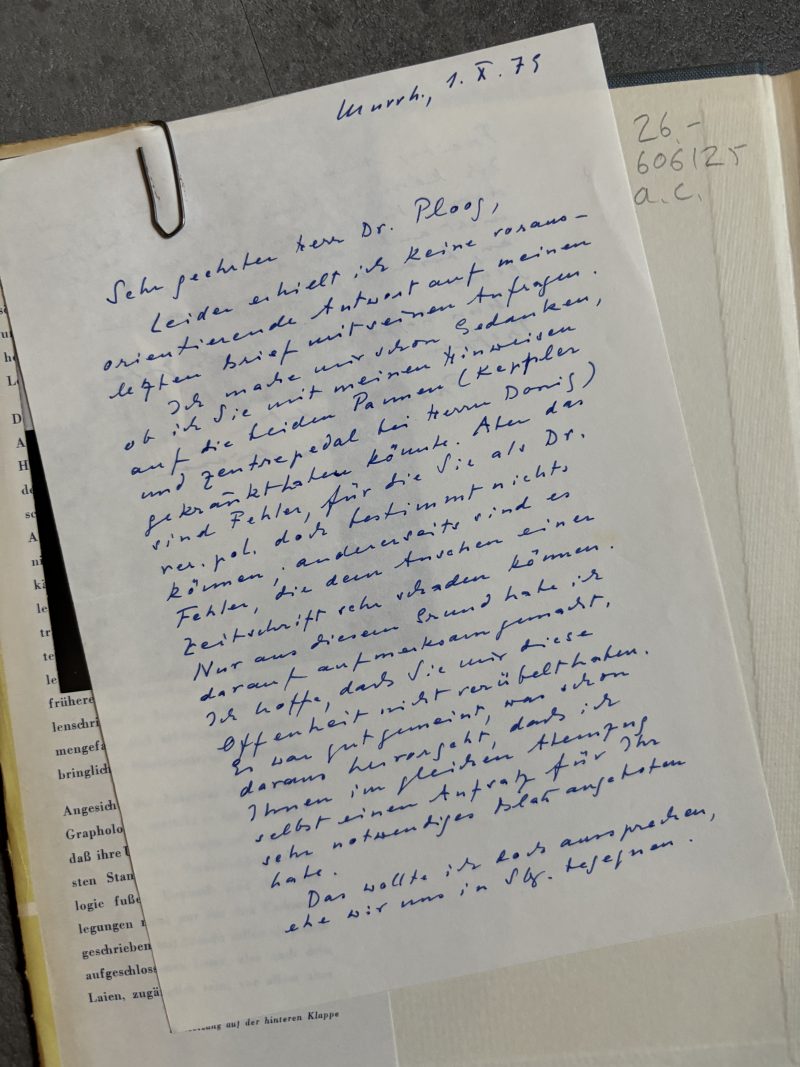 Murrh., 1. X. 79
Sehr geehrter Herr Dr. Ploog,
Leider erhielt ich keine voraus-
orientierende Antwort auf meinen
letzten Brief mit seinen Anfragen.
Ich mache mir schon Gedanken,
ob ich Sie mit meinen Hinweisen
auf die beiden Pannen (Keppler
und Zentrepedal bei Herrn Donig)
gekränkt haben könnte. Aber das
sind Fehler, für die Sie als Dr.
rer. pol. doch bestimmt nichts
können, andererseits sind es
Fehler, die dem Ansehen einer
Zeitschrift sehr schaden können.
Nur aus diesem Grund habe ich
darauf aufmerksam gemacht.
Ich hoffe, dass Sie mir diese
Offenheit nicht verübelt haben.
Es war gut gemeint, was schon
daraus hervorgeht, dass ich
Ihnen im gleichen Atemzug
selbst einen Aufsatz für Ihr
sehr notwendiges Blatt angeboten
habe.
Das wollte ich doch aussprechen,
ehe wir uns in Sbg. begegnen.
26.-
606125
a.c.
früher
lenschri
mengefa
bringlich
Angesich
Grapholo
daß ihre
sten Stan
logie fuße
legungen
geschrieben
aufgeschloss
Laien, zugä
auf der hinteren Klappe